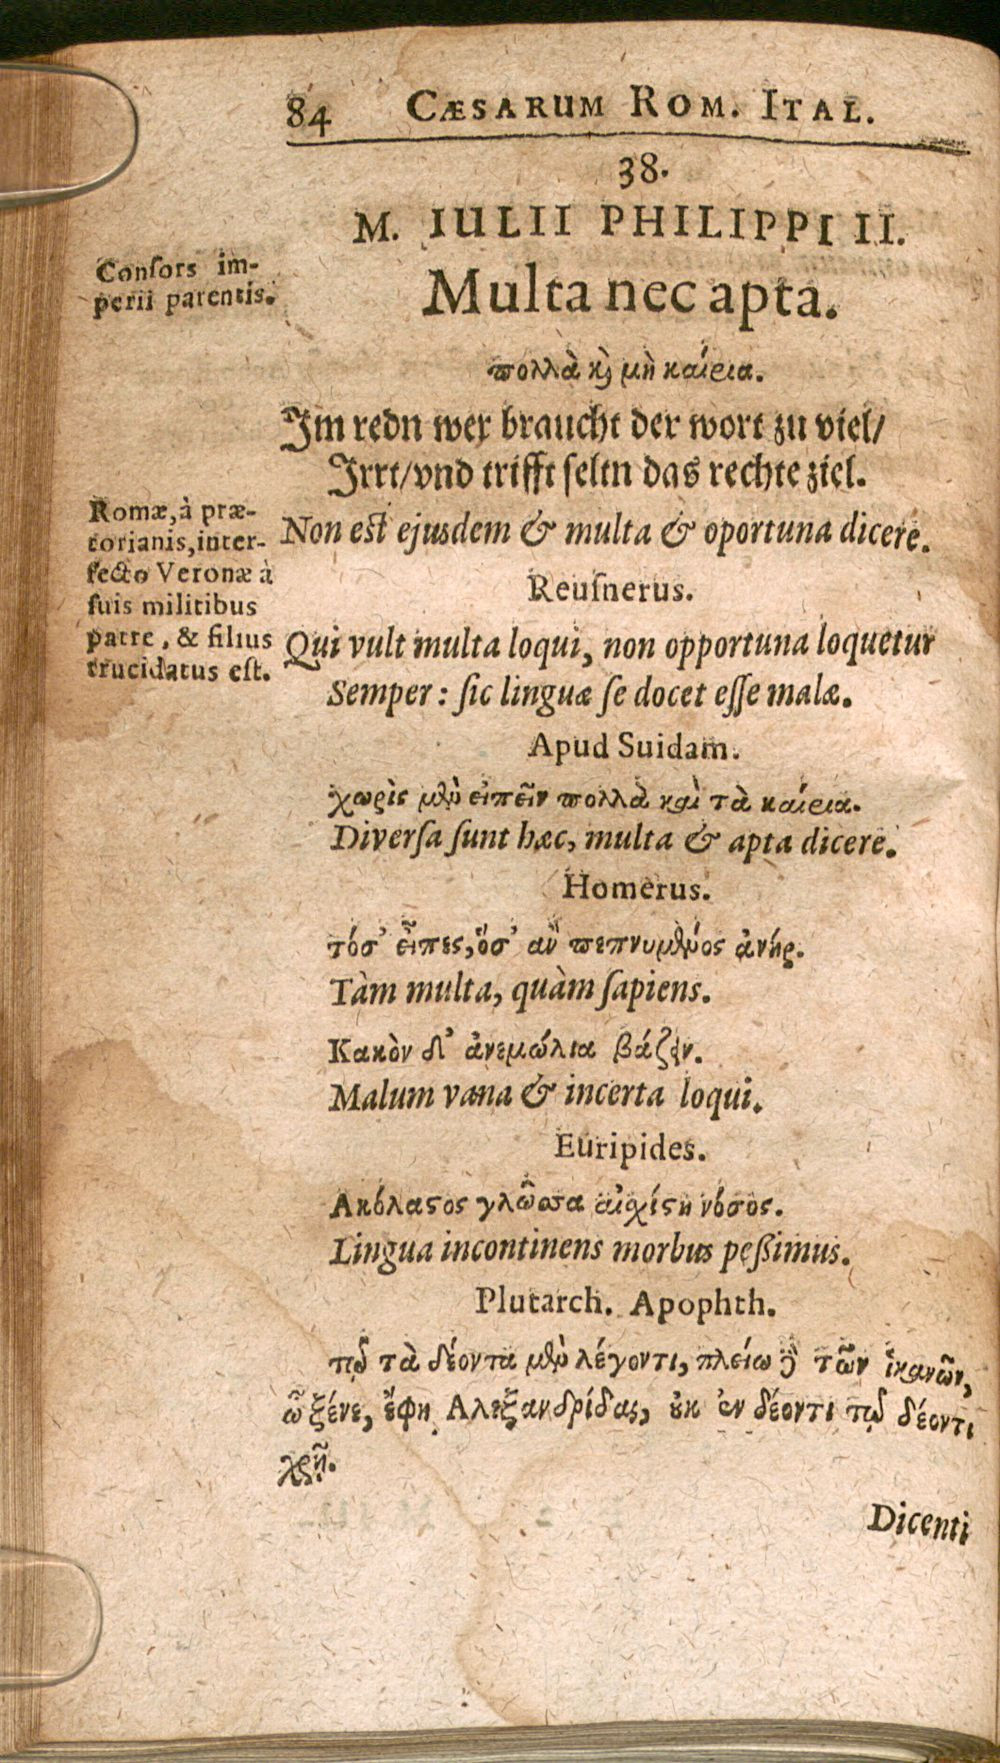 84 CÆSARUM ROM. ITAL.
38.
M. IULII PHILIPPI II.
Conſors im-
perii parentis.
Multa nec apta.
πολλὰ κ̀ μὴ καίρια.
Im redn wer braucht der wort zu viel/
Irrt/vnd trifft ſeltn das rechte ziel.
Romæ, à præ-
torianis, inter-
fecto Veronæ à
ſuis militibus
patre, & filius
trucidatus eſt.
Non eſt ejusdem & multa & oportuna dicere.
Reuſnerus.
Qui vult multa loqui, non opportuna loquetur
Semper: ſic linguæ ſe docet eſſe malæ.
Apud Suidam.
χωρὶς μὲν εἰπεῖν πολλὰ καὶ τὰ καίρια.
Diverſa ſunt hæc, multa & apta dicere.
Homerus.
τόσ' εἶπες, ὅσ' ἂν πεπνυμένος ἀνήρ.
Tàm multa, quàm ſapiens.
Κακὸν δ' ἀνεμώλια βάζειν.
Malum vana & incerta loqui.
Euripides.
Ακόλαςος γλῶσσα αἰχίςη νόσος.
Lingua incontinens morbus peßimus.
Plutarch. Apophth.
τῷ τὰ δέοντα μὲν λέγοντι, πλείω δὲ τῶν ἱκανῶν,
ὦ ξένε, ἔφη Αλεξανδρίδας, ȣκ ἐν δέοντι τῷ δέοντι
χρῇ.
Dicenti